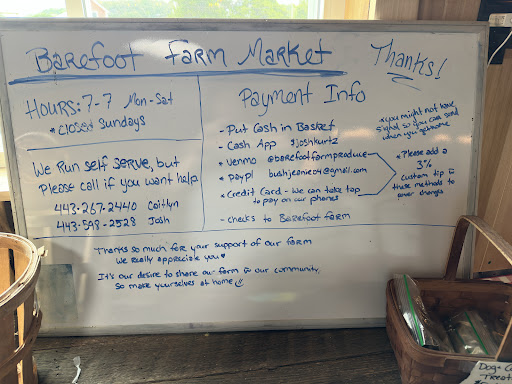 Barefoot Farm Market
Thanks!
Hours: 7-7 Mon-Sat
* Closed Sundays
We Run self serve, but
Please call if you want help
443-267-2440 Caitlyn
443-598-2528 Josh
Payment Info
- Put Cash in Basket
- Cash App $joshkurtz
* Venmo @barefootfarmproduce
* Paypl bushjeenie04@gmail.com
* Credit Card - We can take tap
to pay on our phones
- Checks to Barefoot Farm
* you might not have
signal so you can send
when you get home
* Please add a
3%
custom tip to
these methods to
cover charges
Thanks so much for your support of our farm
We really appreciate you ♥
It's our desire to share our farm & our community,
So make yourselves at home
Dog + C
Treat